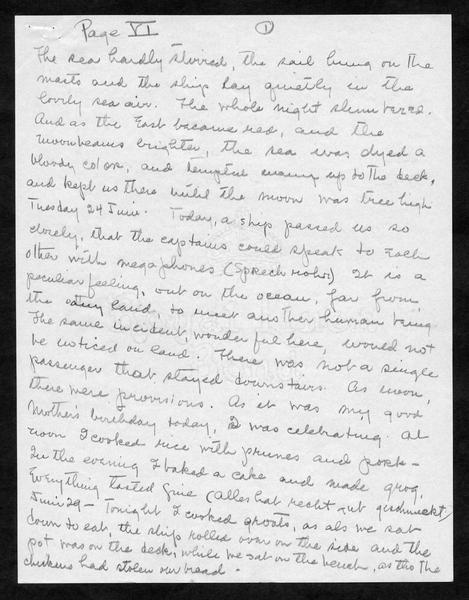 Page VI
1
The sea hardly stirred, the sail hung on the
masts and the ship lay quietly in the
lovely sea air. The whole night slumbered.
And as the East became red, and the
moonbeams brighter, the sea was dyed a
bloody color, and tempted up to the deck,
and kept us there until the moon was tree high
Tuesday 24 June. Today, a ship passed us so
closely, that the captains could speak to each
other with megaphones (Sprech rohr) It is a
peculiar feeling, out on the ocean, far from
the land, to meet another human being
The same incident, wonderful here, would not
be noticed on land. There was not a single
passenger that stayed downstairs. As noon,
there were provisions. As it was my good
Mother's birthday today, I was celebrating. At
noon I cooked rice with prunes and pork -
In the evening I baked a cake and made grog.
Everything tasted fine (Alles hat recht gut geschmeckt)
June 29 - Tonight I cooked groats, as als we sat
down to eat, the ship rolled over on the side and the
pot was on the deck, while we sat on the bench, as tho the
chickens had stolen our bread.